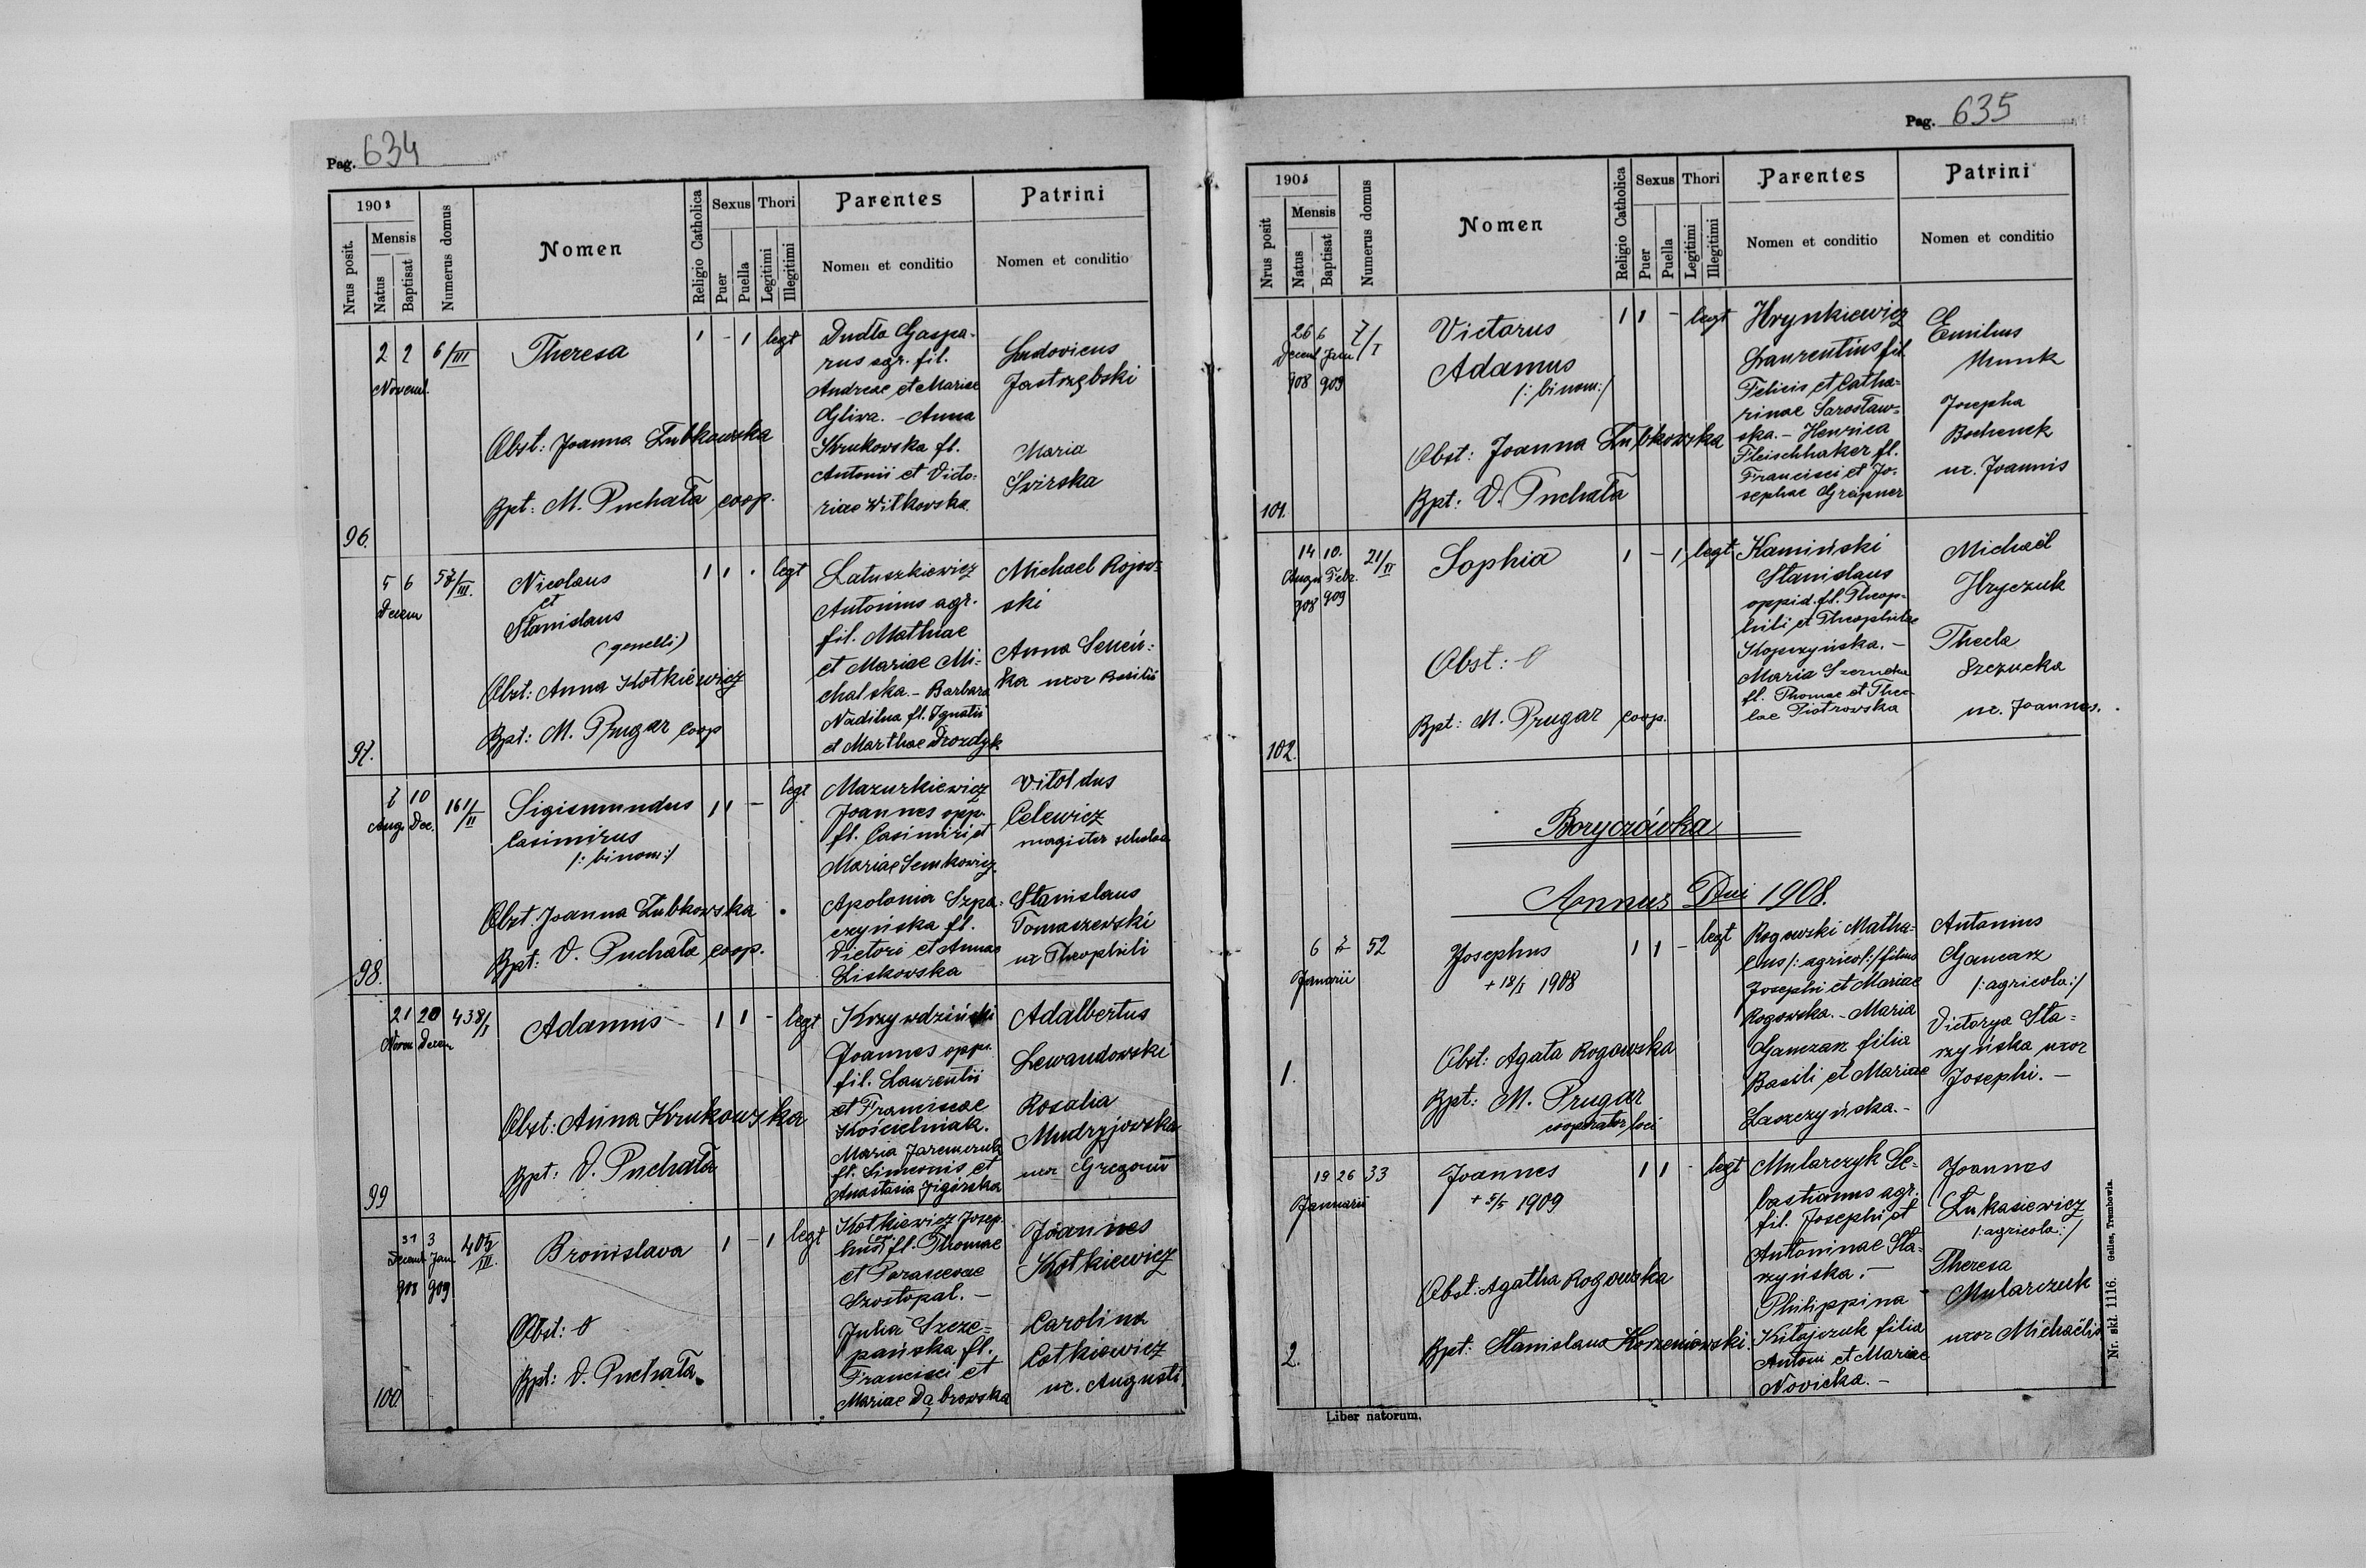 Pag. 634
1908
Nrus posit.
Mensis
Natus
Baptisat
Numerus domus
Nomen
Religio Catholica
Sexus
Puer
Puella
Thori
Legitimi
Illegitimi
Parentes
Nomen et conditio
Patrini
Nomen et conditio
96.
2 2
Novemb.
6/III
Theresa
Obst: Joanna Łubkowska
Bpt: M. Puchała coop.
1 - 1 legt
Dudła Gaspa-
rus agr. fil.
Andreae et Mariae
Gliwa. - Anna
Krukowska fl.
Antonii et Victo-
riae Witkowska.
Ludovicus
Jastrzębski
Maria
Svirska
97.
5 6
Decem
57/III.
Nicolaus
et
Stanislaus
(gemelli)
Obst: Anna Kotkiewicz
Bpt: M. Prugar coop
1 1 . legt
Latuszkiewicz
Antonius agr.
fil. Mathiae
et Mariae Mi-
chalska. - Barbara
Nadilna fl. Ignatii
et Marthae Drozdyk
Michael Rojow-
ski
Anna
ka uxor Basilii
98.
7 10
Aug. Dec.
161/II
Sigismundus
Casimirus
/: binom :/
Obst. Joanna Łubkowska
Bpt: V. Puchała coop.
1 1 - legt
Mazurkiewicz
Joannes opp.
fl. Casimiri et
Mariae Semkowicz.
Apolonia Szpa-
czyńska fl.
Victori et Annae
Liskowska
Vitoldus
Celewicz
magister scholae
Stanislaus
Tomaszewski
ux Theophili
99
21 20
Novem Decem
438/I
Adamus
Obst: Anna Krukowska
Bpt: V. Puchała
1 1 - legt
Krzywdziński
Joannes opp.
fil. Laurentii
et Franciscae
Kościelniak.
Maria Jaremczuk
fl. Simeonis et
Anastasia Żigórska
Adalbertus
Lewandowski
Rosalia
Mudryjowska
uxor Gregorii
100.
31 3
Decemb Jan
908 909
405/III.
Bronislava
Obst: 0
Bpt: V. Puchała.
1 - 1 legt
Kotkiewicz Josep-
hus fl. Thomae
et Parascevae
Szostopal. -
Julia Szcze-
pańska fl.
Francisci et
Mariae Dąbrowska
Joannes
Kotkiewicz
Carolina
Cotkiewicz
ux. Augusti.
Pag. 635
1908
Nrus posit
Mensis
Natus
Baptisat
Numerus domus
Nomen
Religio Catholica
Sexus
Puer
Puella
Thori
Legitimi
Illegitimi
Parentes
Nomen et conditio
Patrini
Nomen et conditio
101.
26 6
Decemb Jan
908 909
7/I
Victorus
Adamus
/: binom :/
Obst: Joanna Łubkowska
Bpt: V. Puchała
1 1 - legt
Hrynkiewicz
Laurentius fil
Felicis et Catha-
rinae Sarosław-
ska. - Henrica
Fleischhaker fl.
Francisci et Jo-
sephae Greipner
Emilius
Munk
Josepha
Bochenek
ux. Joannis
102.
14 10.
Augu Febr.
908 909
21/II
Sophia
Obst: 0
Bpt: M. Prugar coop.
1 - 1 legt
Kamiński
Stanislaus
oppid. fl. Theop-
hili et Theophilae
Kopczyńska. -
Maria
fl. Thomae et Thec-
lae Piotrowska
Michaël
Hryczuk
Thecla
Szczucka
ux. Joannes.
Boryczówka
Annus Dni 1908.
1.
6 7
Januarii
52
Josephus
+ 18/I 1908
Obst: Agata Rogowska
Bpt: M. Prugar
cooperator loci
1 1 - legt
Rogowski Matha-
eus /: agricol :/ filius
Josephi et Mariae
Rogowska. - Maria
Ganczar filia
Basili et Mariae
Łaszczyńska. -
Antonius
Gancarz
/: agricola :/
Victorya Sta-
rzyńska uxor
Josephi. -
2.
19 26
Januarii
33
Joannes
+ 5/5 1909
Obst: Agatha Rogowska
Bpt: Stanislaus Korzeniowski.
1 1 - legt
Mularczyk Se-
bastianus agr.
fil. Josephi et
Antoninae Sta-
rzyńska. -
Philippina
Kitajczuk filia
Antoni et Mariae
Novicka. -
Joannes
Łukasiewicz
/: agricola :/
Theresa
Mularczuk
uxor Michaëlis
Liber natorum.
Nr. skł. 1116. Galles, Trembowla.